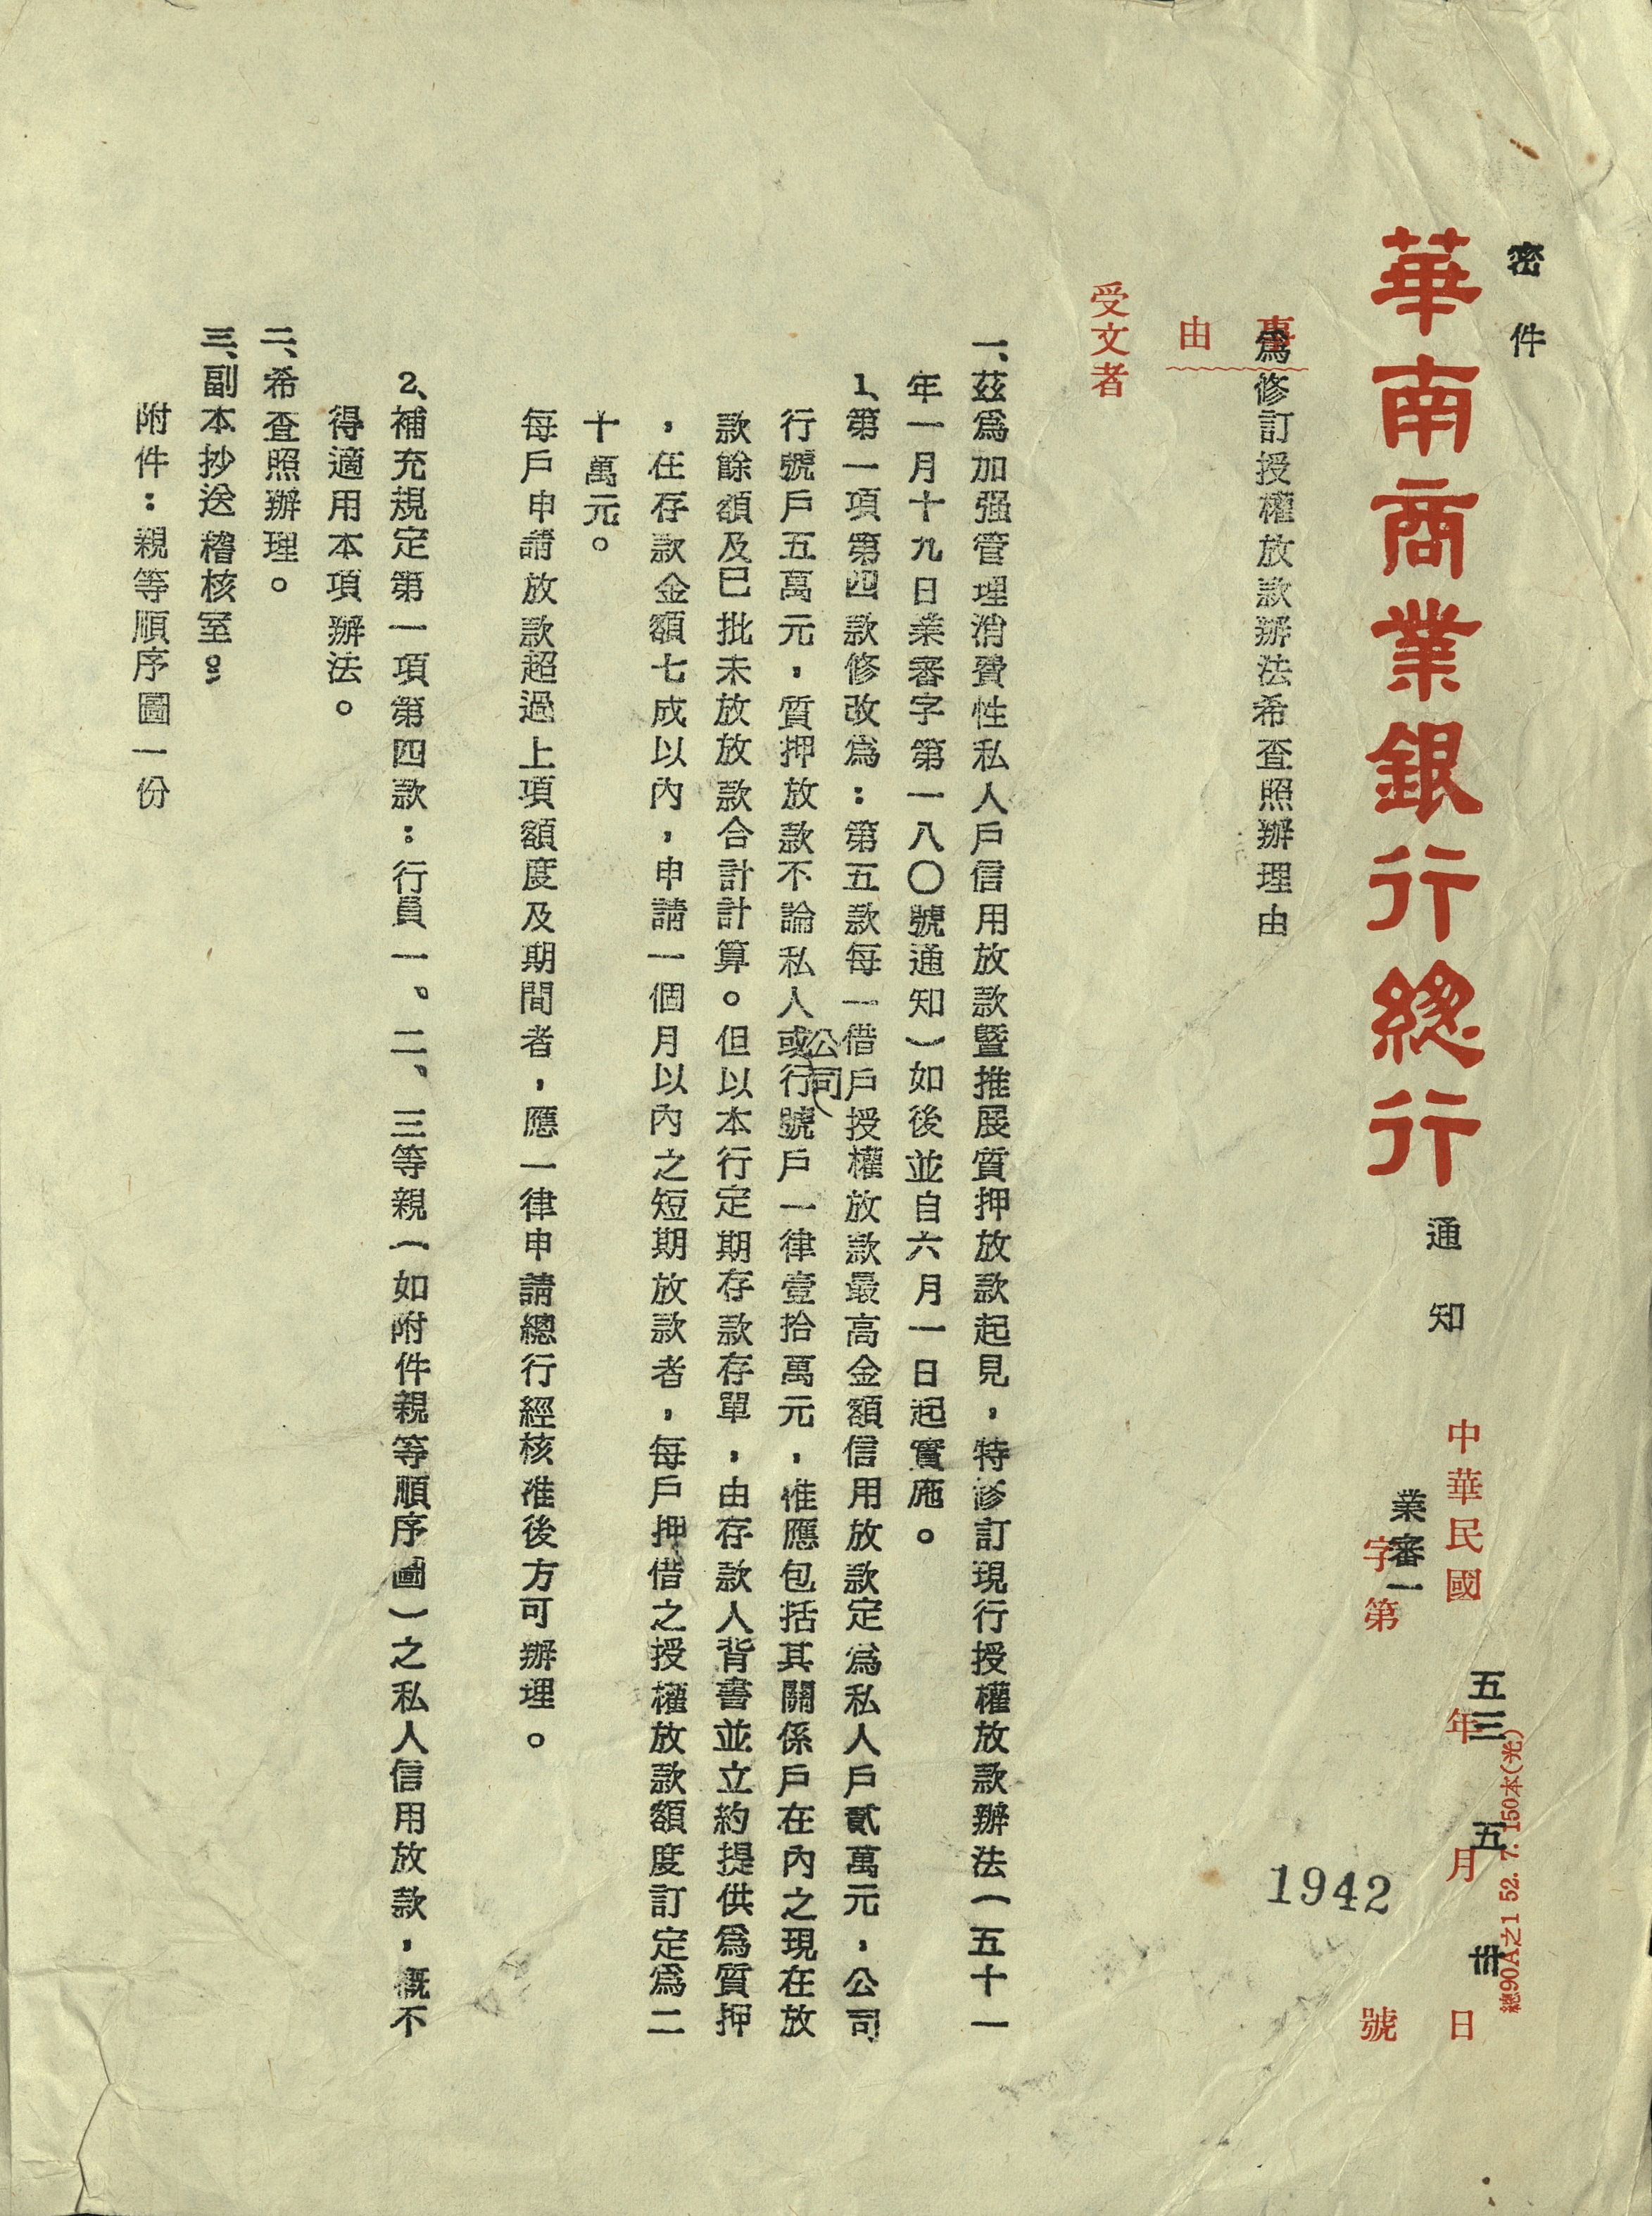 密件
華南商業銀行總行 通知
中華民國五三年五月卅日
業審一字第1942號
總90A之1 52. 7. 150本(光)
事由
爲修訂授權放款辦法希查照辦理由
受文者
一、茲爲加强管理消費性私人戶信用放款暨推展質押放款起見,特修訂現行授權放款辦法(五十一
年一月十九日業審字第一八〇號通知)如後並自六月一日起實施。
1、第一項第四款修改爲:第五款每一借戶授權放款最高金額信用放款定爲私人戶貳萬元,公司
行號戶五萬元,質押放款不論私人或公司行號戶一律壹拾萬元,惟應包括其關係戶在內之現在放
款餘額及已批未放放款合計計算。但以本行定期存款存單,由存款人背書並立約提供爲質押
,在存款金額七成以內,申請一個月以內之短期放款者,每戶押借之授權放款額度訂定爲二
十萬元。
每戶申請放款超過上項額度及期間者,應一律申請總行經核准後方可辦理。
2、補充規定第一項第四款:行員一、二、三等親(如附件親等順序圖)之私人信用放款,概不
得適用本項辦法。
二、希查照辦理。
三、副本抄送稽核室。
附件:親等順序圖一份